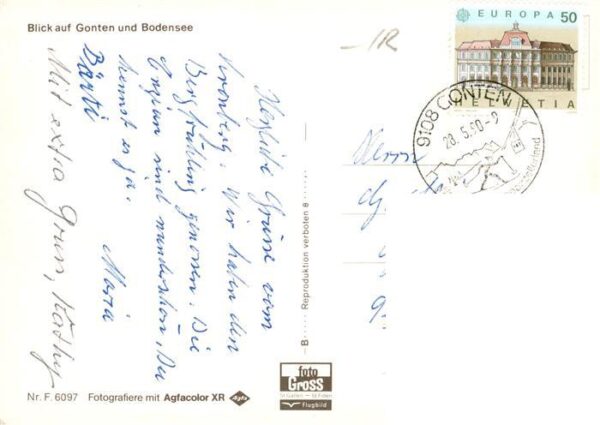 Blick auf Gonten und Bodensee
Herzliche Grüsse vom
Kronberg. Wir haben den
Bergfrühling genossen. Die
Enzian sind wunderschön. Du
kennst es ja.
Maria
Bärti
Mit extra Gruss, Käthy
Nr. F. 6097 Fotografiere mit Agfacolor XR Agfa
B Reproduktion verboten 8
foto
Gross
St. Gallen
Flugbild
R
EUROPA 50
HELVETIA
9108 GONTEN
28.5.90-9
Herrn
9